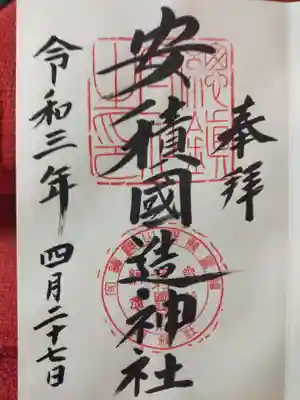 奉拝
安積國造神社
令和三年 四月二十七日